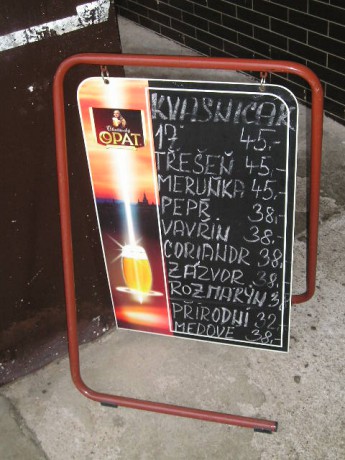 OPAT
KVASNICAR
17° 45.-
TŘEŠEŇ 45.-
MERUŇKA 45.-
PEPŘ 38,-
VAVŘÍN 38.-
CORIANDR 38.
ZÁZVOR 38.
ROZMARÝN
PŘÍRODNÍ 32.-
MEDOVÉ 38.-